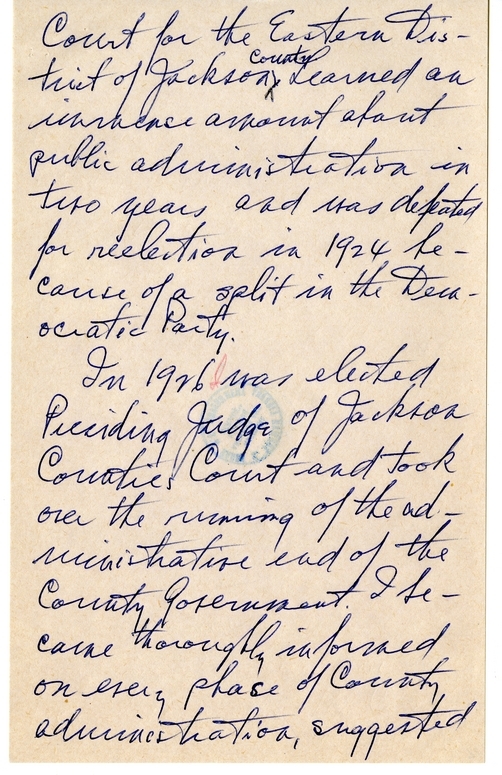 Court for the Eastern Dis-
trict of Jackson County, Learned an
immense amount about
public administration in
two years and was defeated
for reelection in 1924 be-
cause of a split in the Dem-
ocratic Party.
In 1926 I was elected
Presiding Judge of Jackson
Counties Court and took
over the running of the ad-
ministrative end of the
County Government. I be-
came thoroughly informed
on every phase of County
administration, suggested